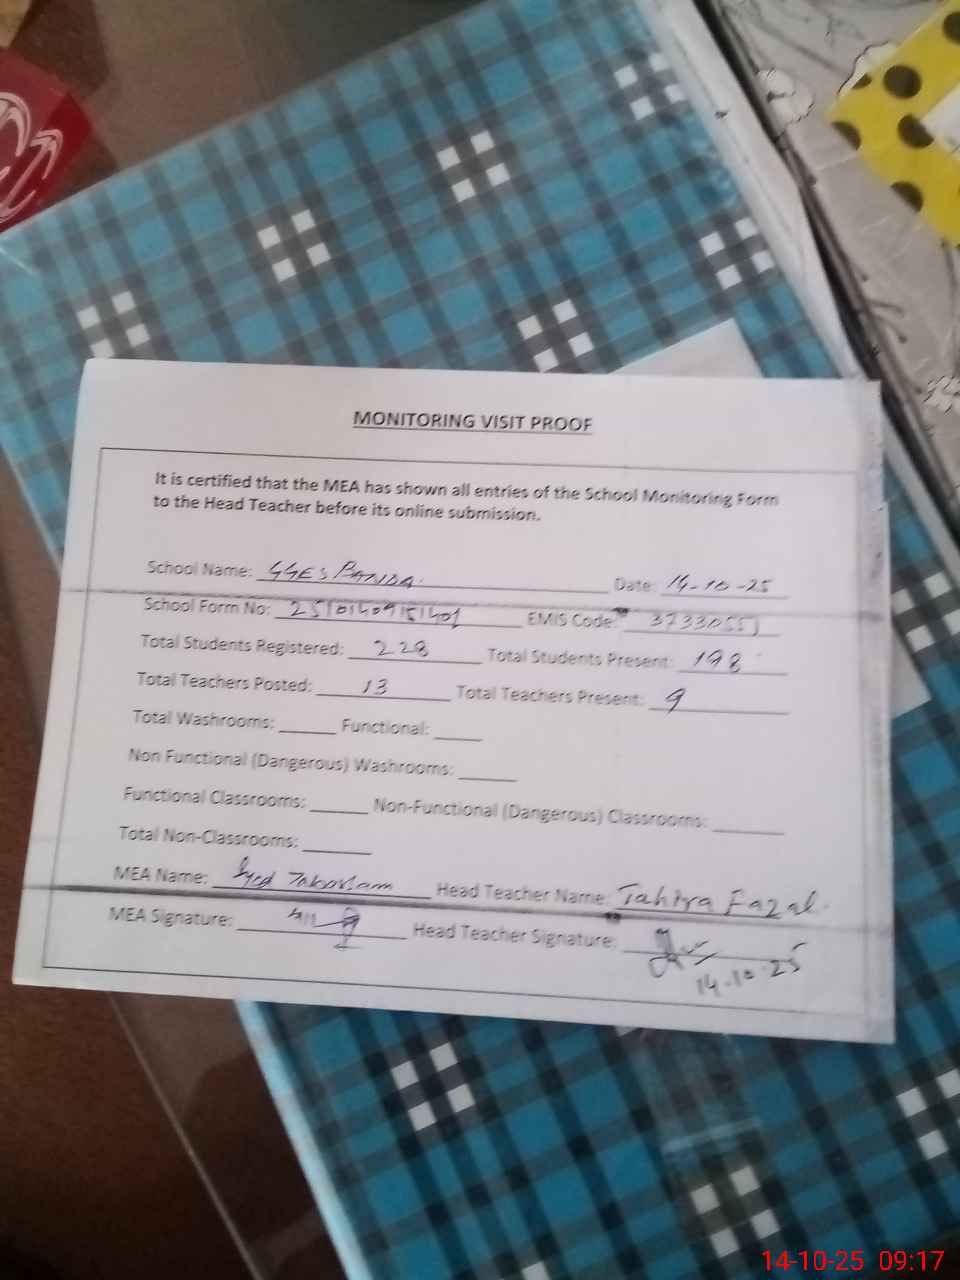 MONITORING VISIT PROOF
It is certified that the MEA has shown all entries of the School Monitoring Form
to the Head Teacher before its online submission.
School Name: GGES BANDA. Date: 14-10-25
School Form No: EMIS Code:
Total Students Registered: 228 Total Students Present: 198
Total Teachers Posted: 13 Total Teachers Present: 9
Total Washrooms: Functional:
Non Functional (Dangerous) Washrooms:
Functional Classrooms: Non-Functional (Dangerous) Classrooms:
Total Non-Classrooms:
MEA Name: Syed Head Teacher Name: Tahira Fazal.
MEA Signature: Head Teacher Signature:
14.10.25
14-10-25 09:17